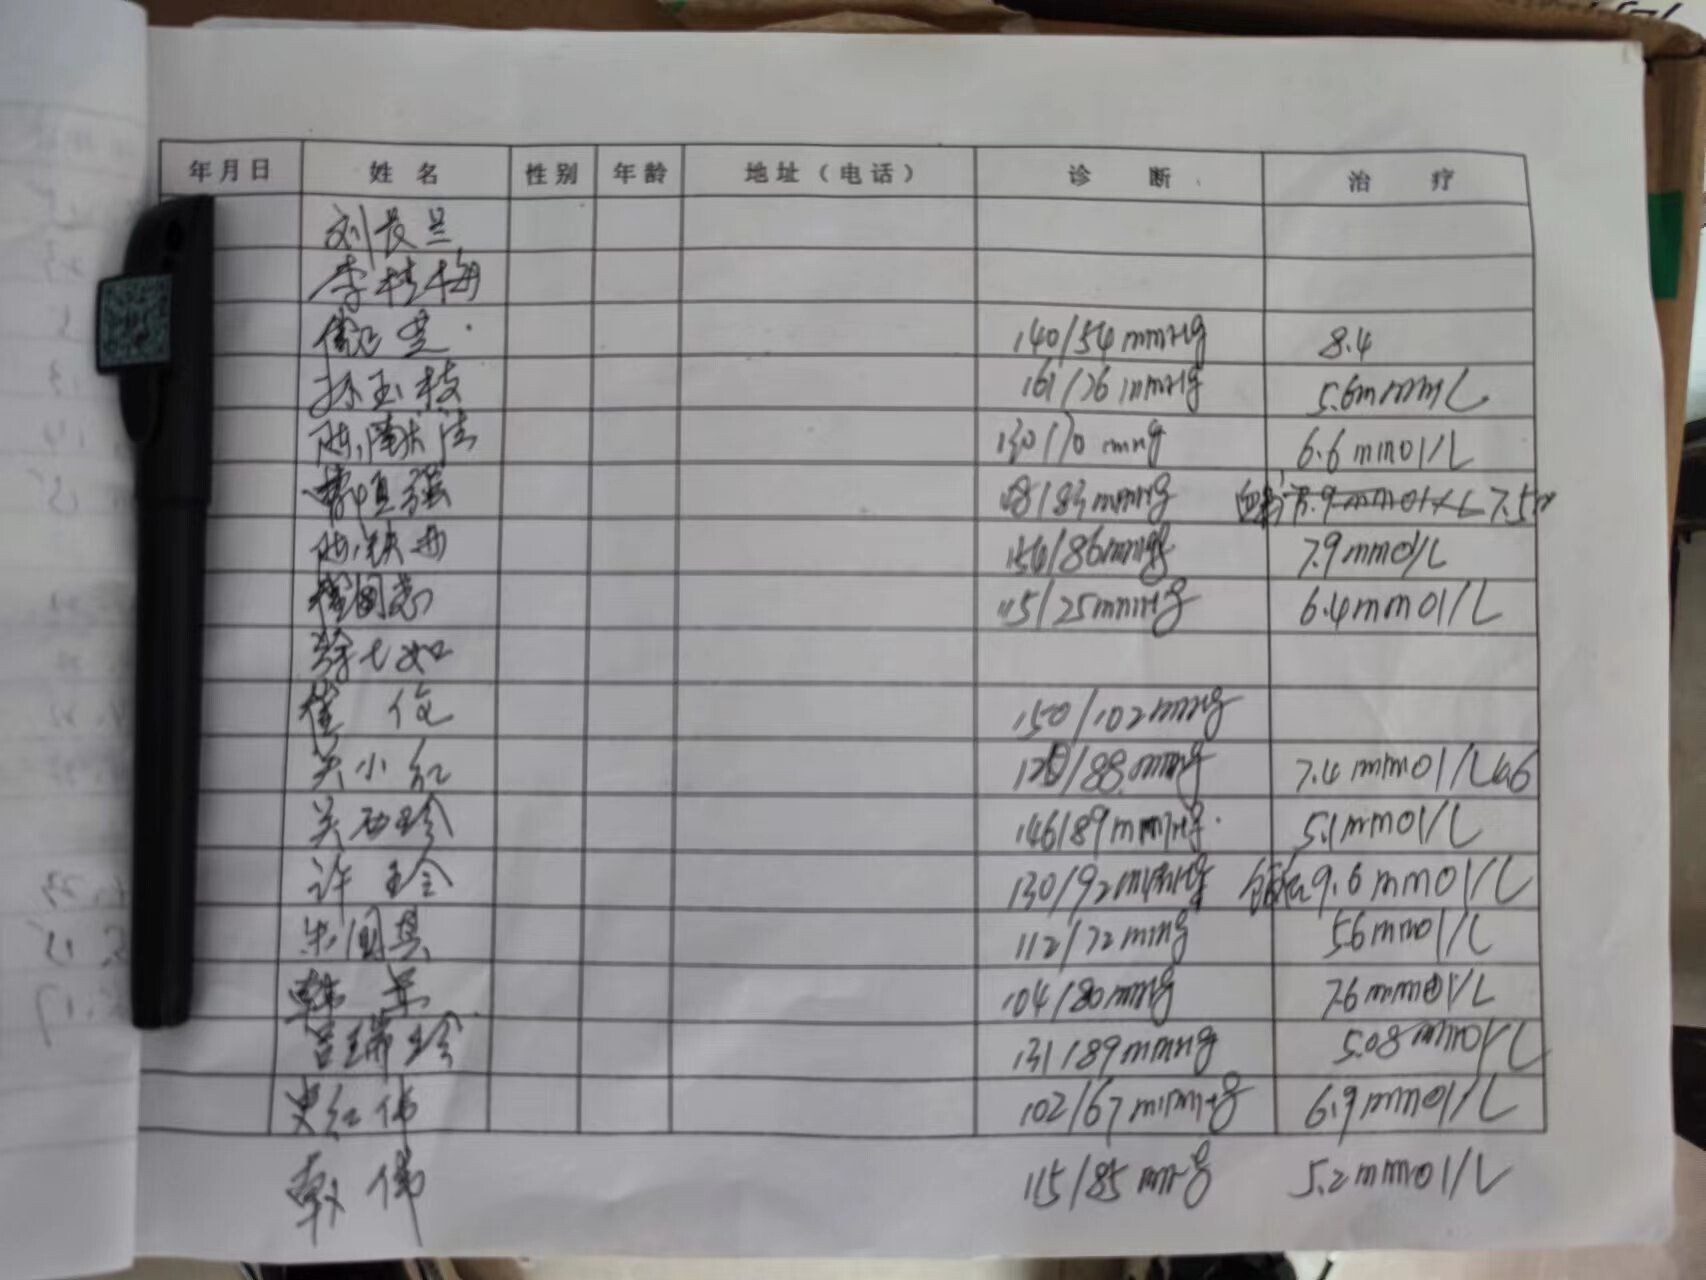 年月日 姓名 性别 年龄 地址（电话） 诊断 治疗
刘长兰
李桂梅
140/54mmHg 8.4
孙玉枝 161/76mmHg 5.6mmmL
130/70mmg 6.6mmol/L
强 108/83mmHg 7.9mmol/L 7.5
154/86mmHg 7.9mmol/L
程国志 115/25mmHg 6.4mmol/L
徐七如
崔俊 150/102mmHg
关小红 /88mmHg 7.4mmol/L 6.6
关西珍 146/89mmHg 5.1mmol/L
许玲 130/92mmHg 9.6mmol/L
朱国其 112/72mmg 5.6mmol/L
韩 104/80mmg 7.6mmol/L
吕瑞玲 131/89mmHg 5.08mmol/L
史红伟 102/67mmHg 6.9mmol/L
韩伟 115/85mmg 5.2mmol/L